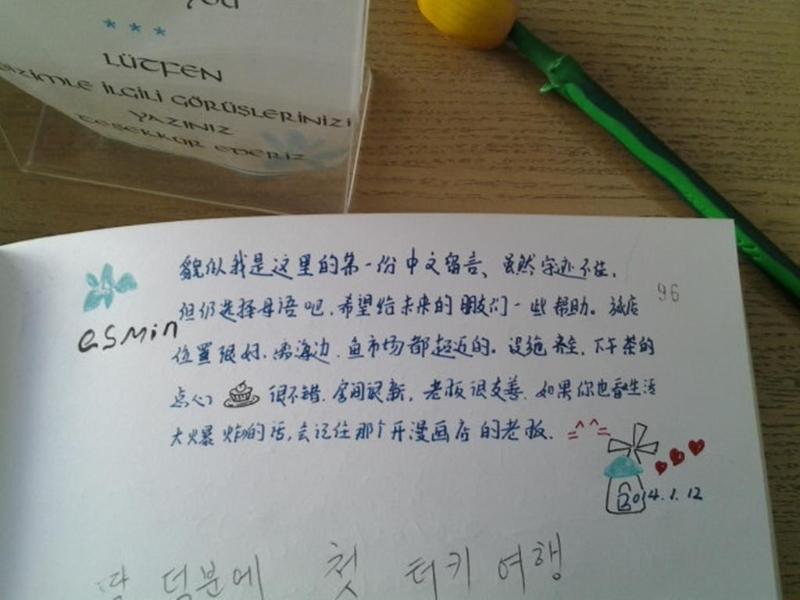 you
* * *
LÜTFEN
BİZİMLE İLGİLİ GÖRÜŞLERİNİZİ
YAZINIZ
TEŞEKKÜR EDERİZ
貌似我是这里的第一份中文留言、虽然字迹不佳,
但仍选择母语吧,希望给未来的朋友们一些帮助。旅店
96
esmin
位置很好,离海边,鱼市场都超近的。设施齐全,下午茶的
点心 很不错,房间很新,老板很友善,如果你也看生活
大爆炸的话,会记住那个开漫画店的老板. =^^=
2014.1.12
덕분에 첫 터키 여행